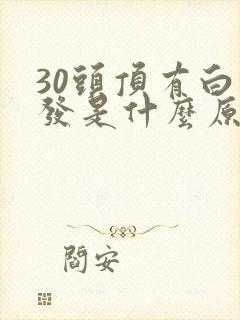 30頭頂有白
發是什麼原
閻安